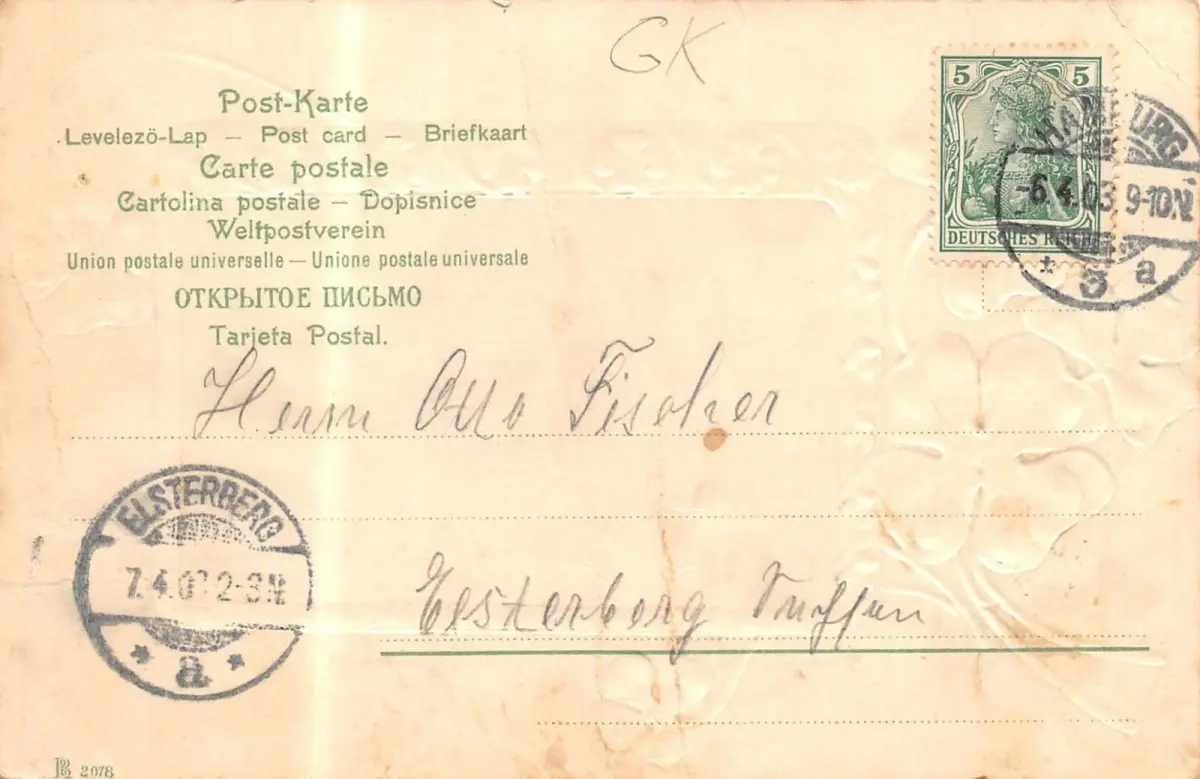 GK
Post-Karte
Levelező-Lap – Post card – Briefkaart
Carte postale
Cartolina postale – Dopisnice
Weltpostverein
Union postale universelle – Unione postale universale
ОТКРЫТОЕ ПИСЬМО
Tarjeta Postal.
5 5
DEUTSCHES REICH
HAMBURG
-6.4.03. 9-10N.
* 3 a
Herrn Otto Fischer
ELSTERBERG
7.4.03 2-3N.
* a *
Elsterberg Sachsen
2078